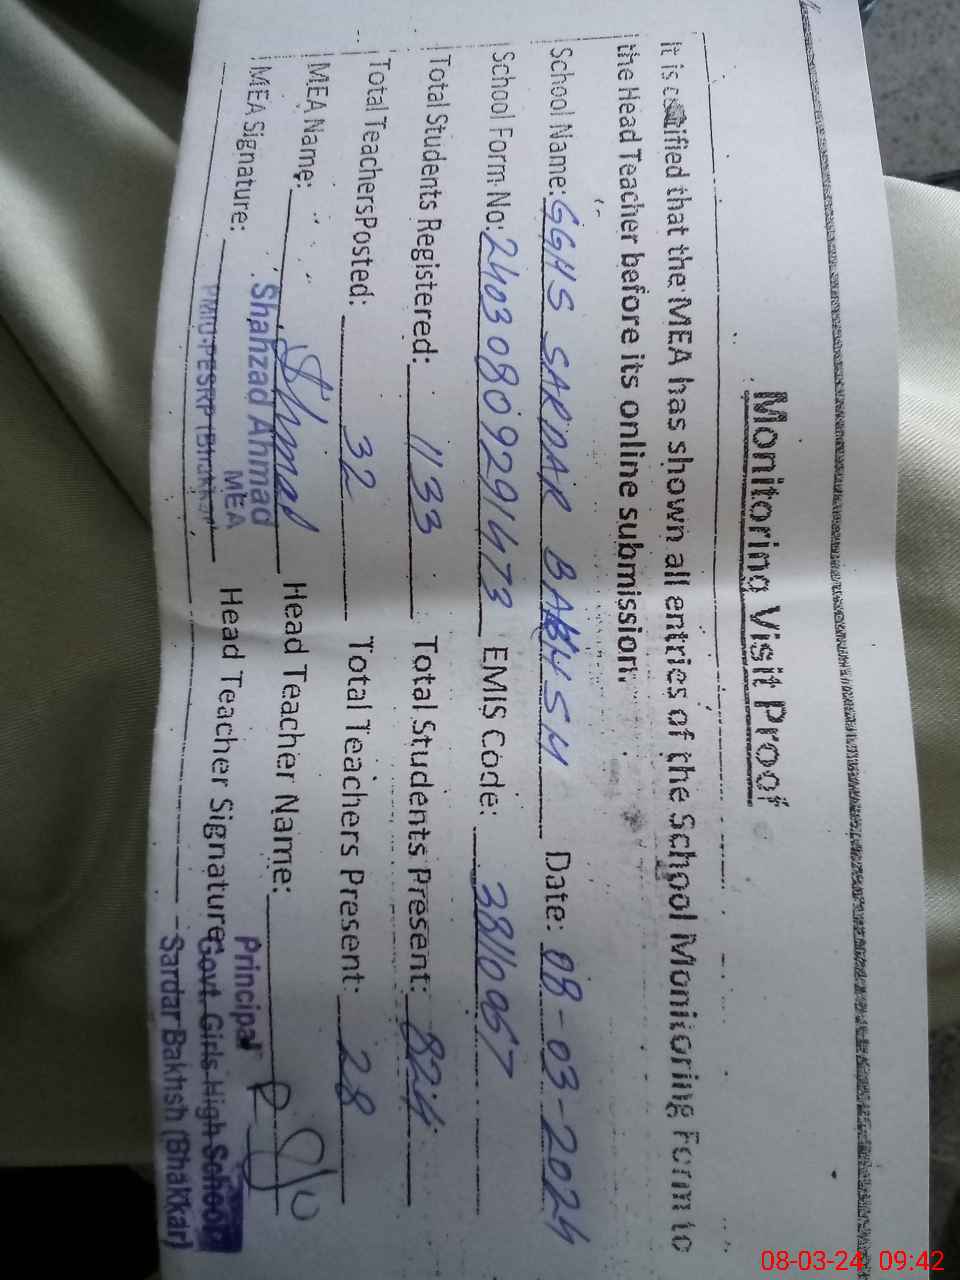 Monitoring Visit Proof
It is certified that the MEA has shown all entries of the School Monitoring Form to
the Head Teacher before its online submission.
School Name: GGHS SARDAR BAKHSH Date: 08-03-2024
School Form No: 24030809291473 EMIS Code: 38110067
Total Students Registered: 1133 Total Students Present: 824
Total TeachersPosted: 32 Total Teachers Present: 28
MEA Name: Ahmad Head Teacher Name:
MEA Signature: Shahzad Ahmad Head Teacher Signature:
MEA
PMIU-PESRP (Bhakkar)
Principal
Govt. Girls High School
Sardar Bakhsh (Bhakkar)
08-03-24, 09:42